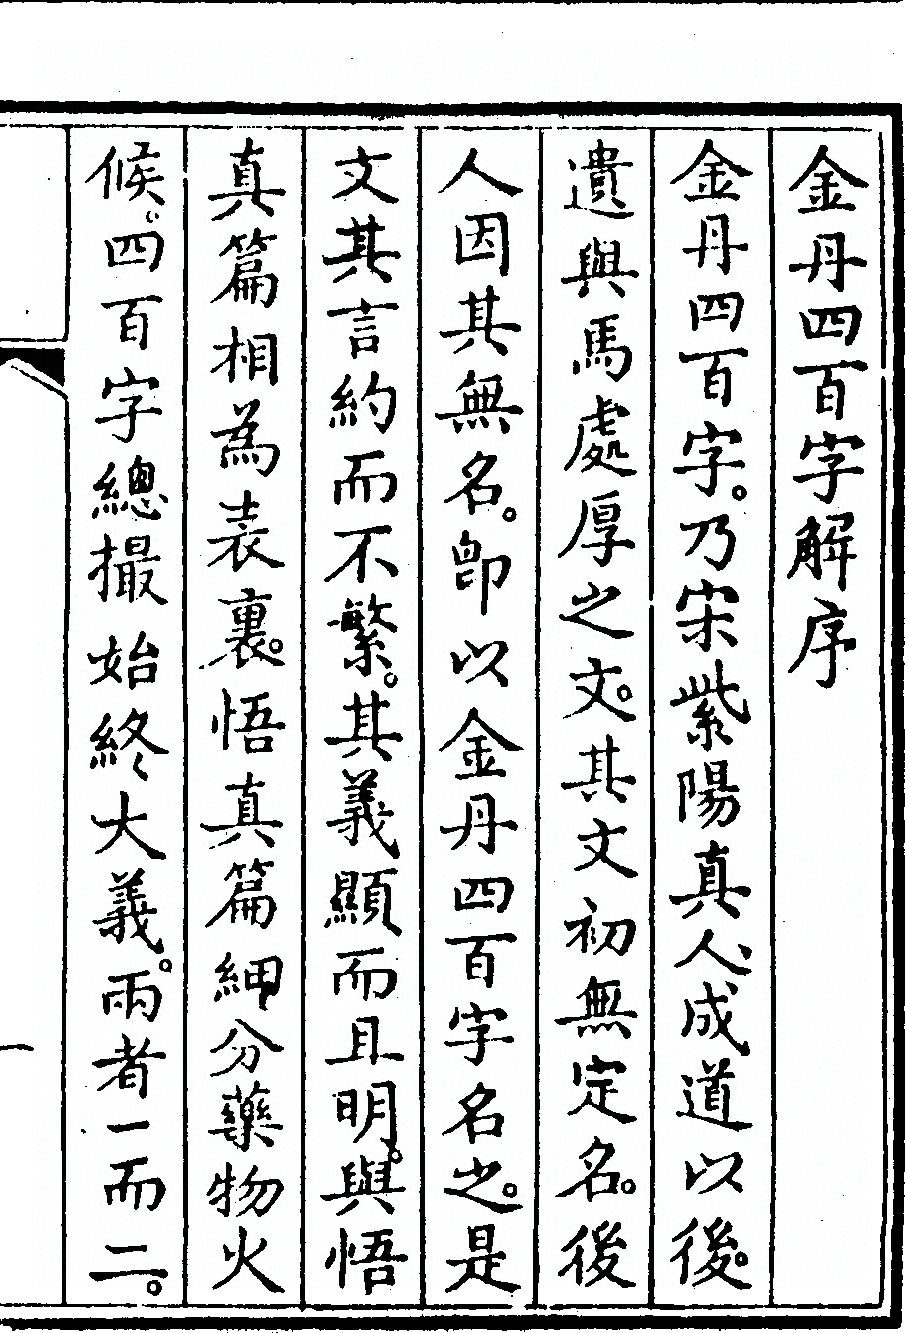 金丹四百字解序
金丹四百字。乃宋紫陽真人、成道以後。
遺與馬處厚之文。其文初無定名。後
人因其無名。卽以金丹四百字名之。是
文其言約而不繁。其義顯而且明。與悟
真篇相為表裏。悟真篇細分藥物火
候。四百字總撮始終大義。兩者一而二。
一